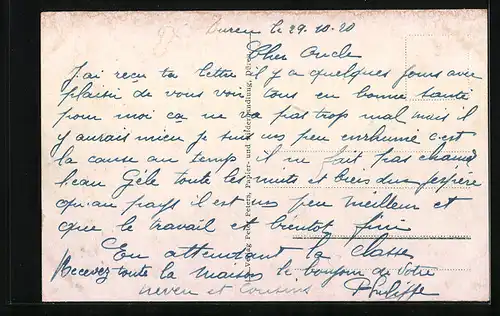 Duren le 29.10.20
Cher Oncle
J'ai reçu ta lettre il y a quelques jours avec
plaisir de vous voir tous en bonne santé
pour moi ca ne va pas trop mal mais il
y aurais mieu je suis un peu enrhumé c'est
la cause au temp il ne fait pas chaud
l'eau Gèle toute les nuits et bien dur j'espère
qu'au pays il est un peu meilleur et
que le travail et bientot fini
En attendant la classe
Recevez toute la maison le bonjour de votre
neveu et Cousins Philippe
Verlag Peter Peters, Papier- und Bilderhandlung, Düren